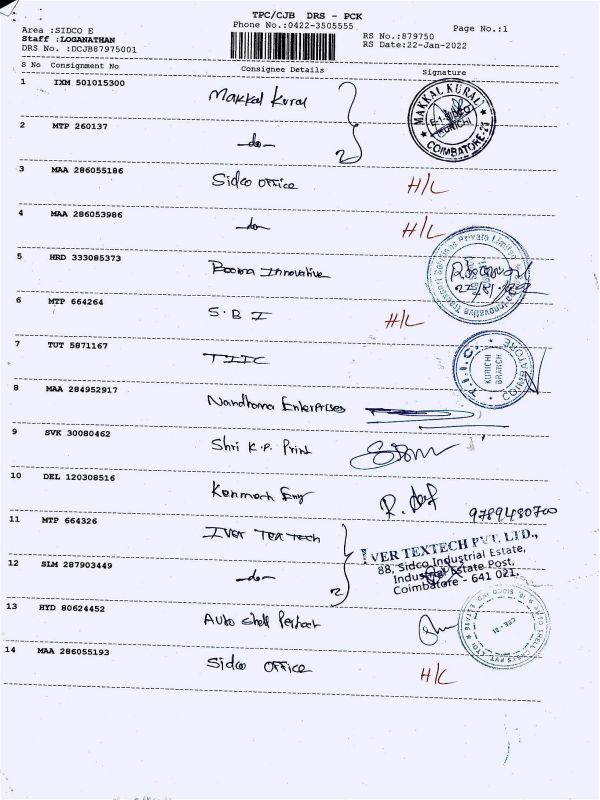 TPC/CJB DRS - PCK
Phone No.:0422-3505555
Page No.:1
Area :SIDCO E
Staff :LOGANATHAN
DRS No. :DCJB87975001
RS No.:879750
RS Date:22-Jan-2022
S No Consignment No Consignee Details Signature
1 IXM 501015300 Makkal Kural
MAKKAL KURAL COIMBATORE-21
E-1-SIDCO KURICHI
2 MTP 260137 -do-
2
3 MAA 286055186 Sidco office H/L
4 MAA 286053986 -do- H/L
5 HRD 333085373 Booma Innovative
6 MTP 664264 S.B I H/L
7 TUT 5871167 TIIC
T.I.I.C. COIMBATORE
KURICHI BRANCH
8 MAA 284952917 Nandhana Enterprises
9 SVK 30080462 Shri K.P. Print
10 DEL 120308516 Engg
9789480700
11 MTP 664326 IVER TEX TECH
IVER TEXTECH PVT. LTD.,
88, Sidco Industrial Estate,
Industrial Estate Post,
Coimbatore - 641 021.
12 SLM 287903449 -do-
2
13 HYD 80624452 Auto Shell
14 MAA 286055193 Sidco OFFice H/L